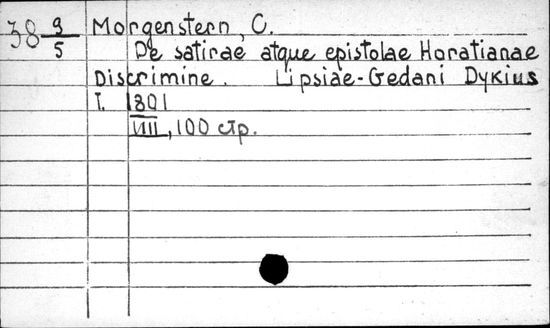 38 9/5
Morgenstern, C.
De satirae atque epistolae Horatianae
Discrimine. Lipsiae-Gedani Dykius
T. 1801
VIII, 100 стр.